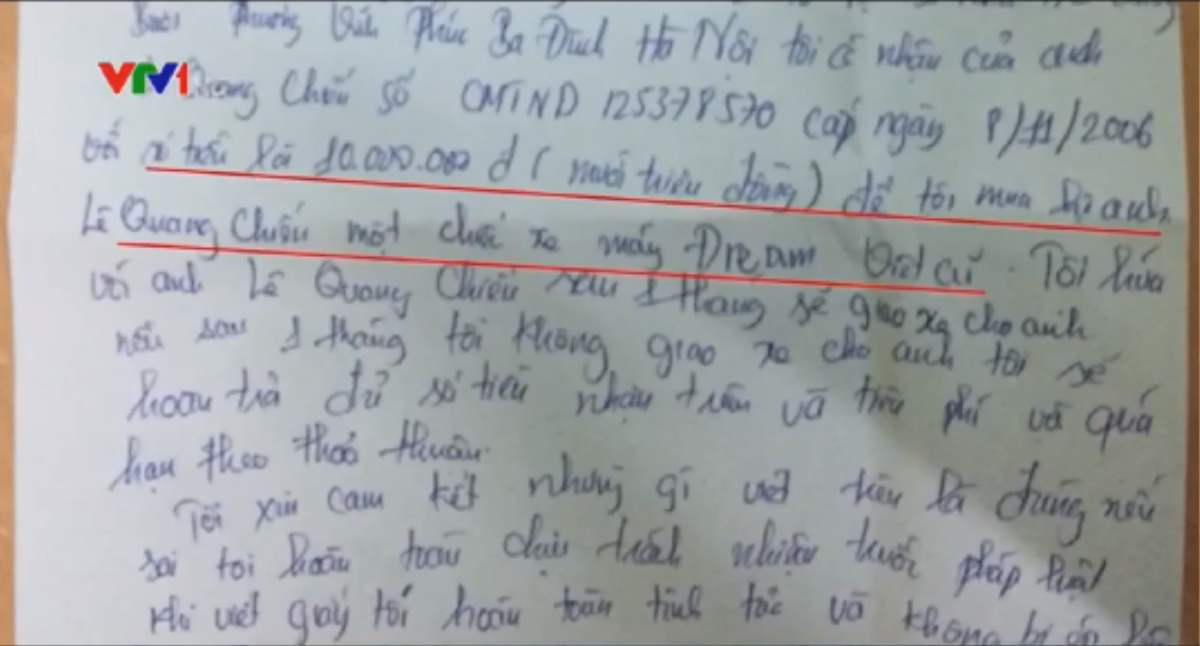 Phường Vĩnh Phúc Ba Đình Hà Nội tôi có nhận của anh
VTV1
Quang Chiến số CMTND 125378570 cấp ngày 8/11/2006
với số tiền là 10.000.000 đ (mười triệu đồng) để tôi mua lại anh
Lê Quang Chiến một chiếc xe máy Dream Việt cũ. Tôi hứa
với anh Lê Quang Chiến sau 1 tháng sẽ giao xe cho anh
nếu sau 1 tháng tôi không giao xe cho anh tôi sẽ
hoàn trả đủ số tiền nhận trên và tiền phí và quá
hạn theo thoả thuận.
Tôi xin cam kết những gì viết trên là đúng nếu
sai toi hoàn toàn chịu trách nhiệm trước pháp luật
khi viết giấy tôi hoàn toàn tỉnh táo và không bị ép